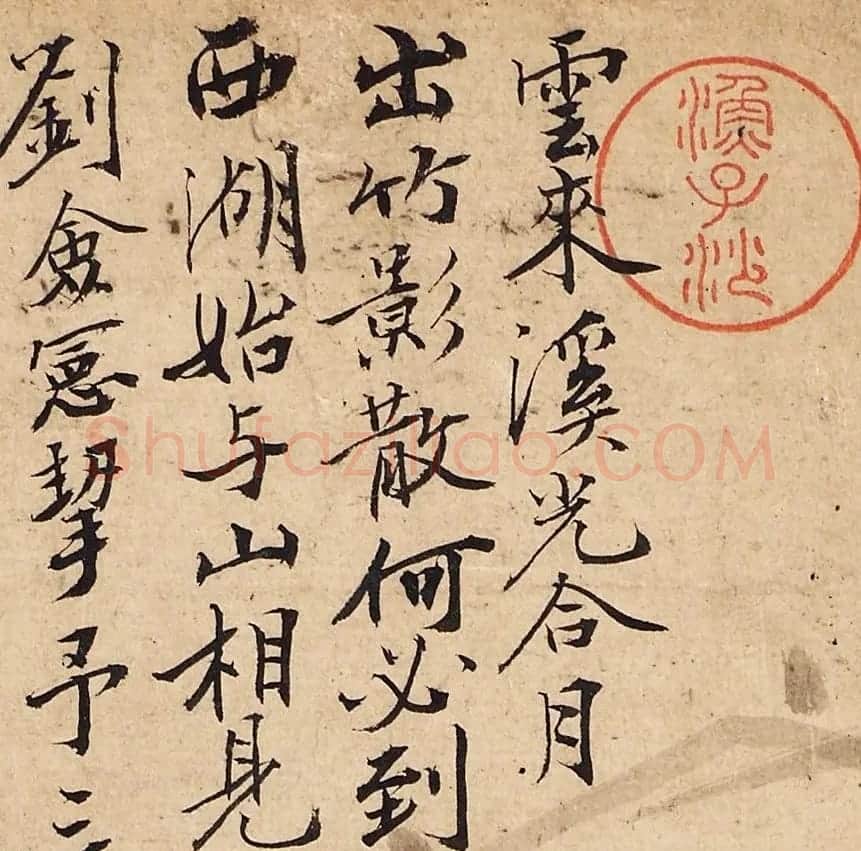 雲來溪光合月
出竹影散何必到
西湖始与山相見
劉會
予二
漁子沙
Shufazidao.COM